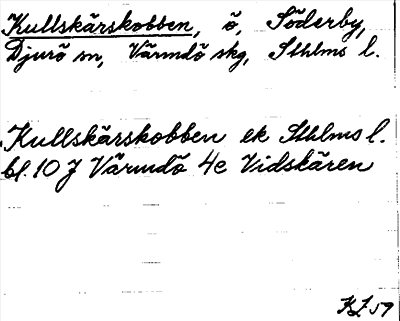 Kullskärskobben, ö, Söderby,
Djurö sn, Värmdö skg, Sthlms l.
Kullskärskobben ek Sthlms l.
bl. 10 J Värmdö 4e Vidskären
KJ 59